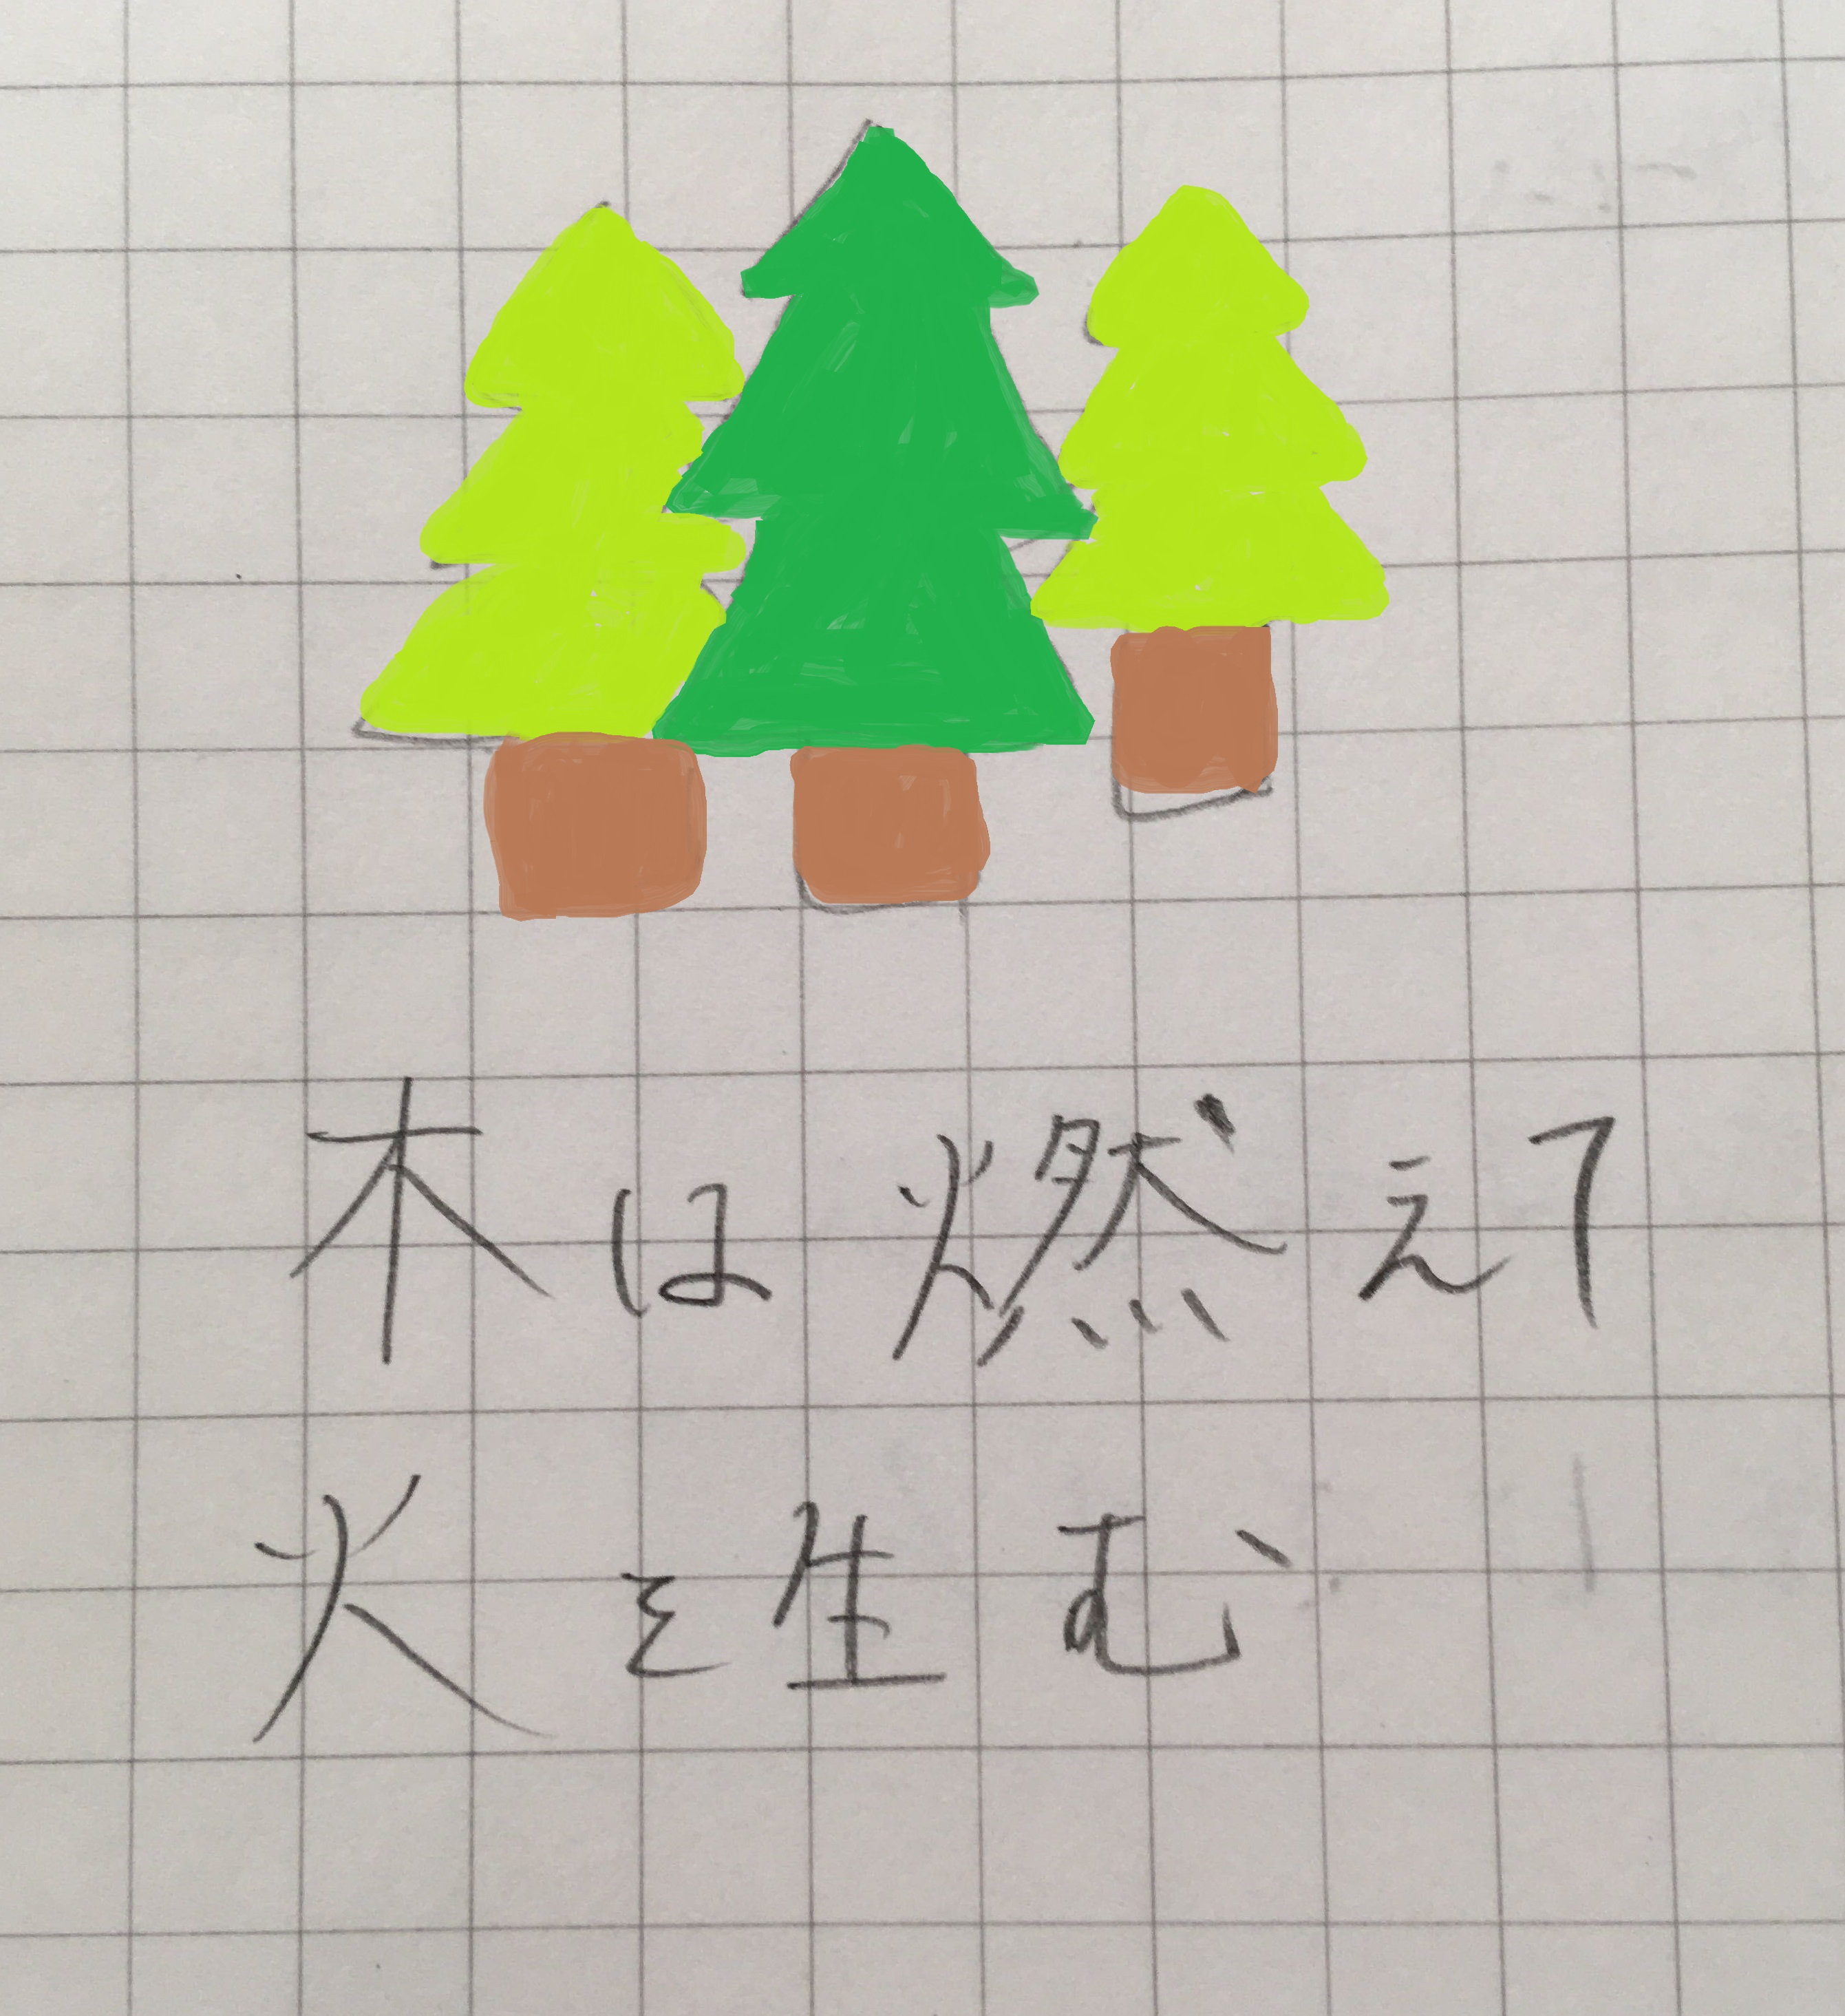 木は燃えて
火を生む